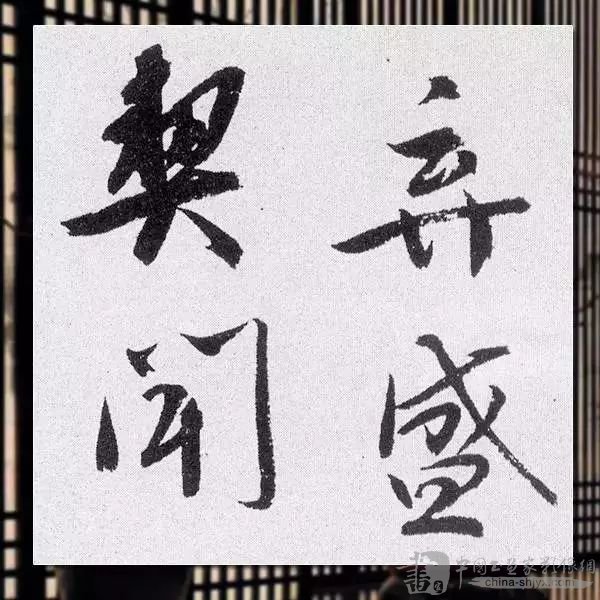 弃盛
契闻
書
中国书画家影像網
china-shjyx.com